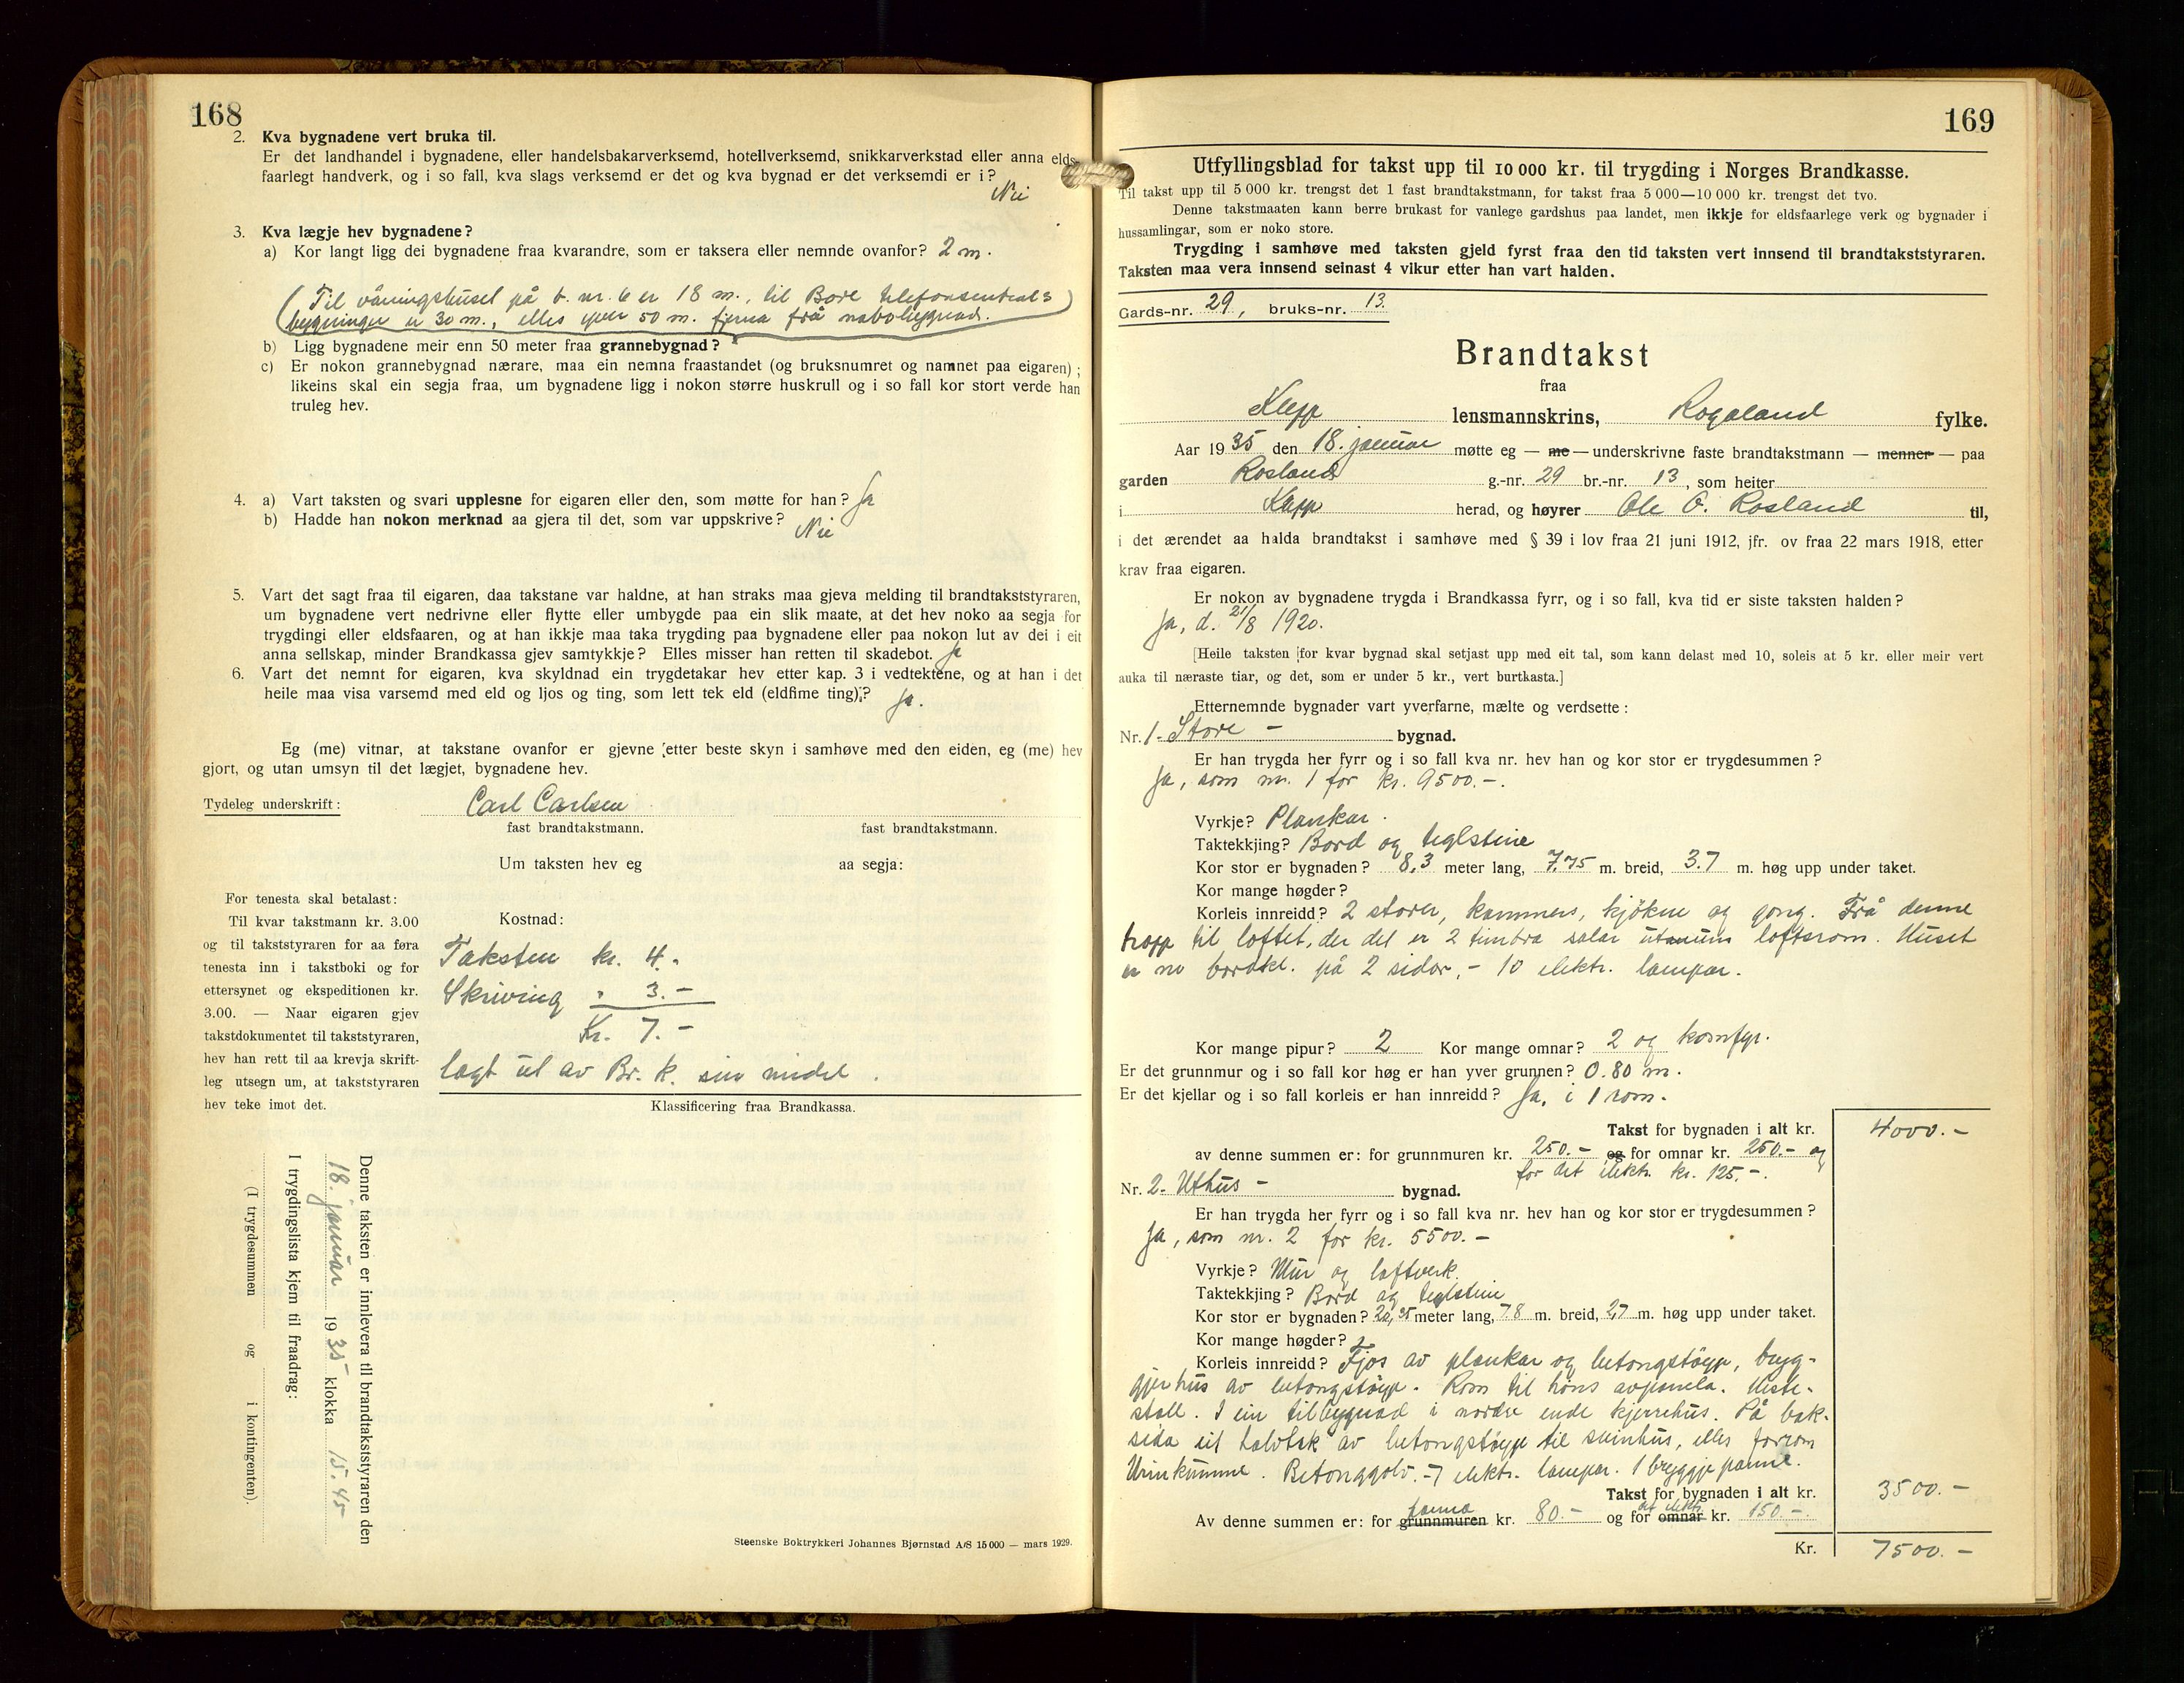 168
2. Kva bygnadene vert bruka til.
Er det landhandel i bygnadene, eller handelsbakarverksemd, hotellverksemd, snikkarverkstad eller anna elds-
faarlegt handverk, og i so fall, kva slags verksemd er det og kva bygnad er det verksemdi er i?
Nei
3. Kva lægje hev bygnadene?
a) Kor langt ligg dei bygnadene fraa kvarandre, som er taksera eller nemnde ovanfor? 2 m.
(Til våningshuset på b. nr. 6 er 18 m., til Bore telefonsentrals
bygningen er 30 m., elles yver 50 m. fjerna frå nabobygnad.)
b) Ligg bygnadene meir enn 50 meter fraa grannebygnad?
c) Er nokon grannebygnad nærare, maa ein nemna fraastandet (og bruksnumret og namnet paa eigaren);
likeins skal ein segja fraa, um bygnadene ligg i nokon større huskrull og i so fall kor stort verde han
truleg hev.
4. a) Vart taksten og svari upplesne for eigaren eller den, som møtte for han? Ja
b) Hadde han nokon merknad aa gjera til det, som var uppskrive?
Nei
5. Vart det sagt fraa til eigaren, daa takstane var haldne, at han straks maa gjeva melding til brandtakststyraren,
um bygnadene vert nedrivne eller flytte eller umbygde paa ein slik maate, at det hev noko aa segja for
trygdingi eller eldsfaaren, og at han ikkje maa taka trygding paa bygnadene eller paa nokon lut av dei i eit
anna sellskap, minder Brandkassa gjev samtykkje? Elles misser han retten til skadebot. Ja
6. Vart det nemnt for eigaren, kva skyldnad ein trygdetakar hev etter kap. 3 i vedtektene, og at han i det
heile maa visa varsemd med eld og ljos og ting, som lett tek eld (eldfime ting)? Ja.
Eg (me) vitnar, at takstane ovanfor er gjevne etter beste skyn i samhøve med den eiden, eg (me) hev
gjort, og utan umsyn til det lægjet, bygnadene hev.
Tydeleg underskrift: Carl Carlsen
fast brandtakstmann. fast brandtakstmann.
Um taksten hev eg aa segja:
For tenesta skal betalast:
Til kvar takstmann kr. 3.00
og til takststyraren for aa føra
tenesta inn i takstboki og for
ettersynet og ekspeditionen kr.
3.00. — Naar eigaren gjev
takstdokumentet til takststyraren,
hev han rett til aa krevja skrift-
leg utsegn um, at takststyraren
hev teke imot det.
Kostnad:
Taksten kr. 4.-
Skriving " 3.-
Kr. 7.-
lagt ut av Br. k. sin midel.
Klassificering fraa Brandkassa.
Denne taksten er innlevera til brandtakststyraren den
18. januar 1935 klokka 15.45
I trygdingslista kjem til fraadrag:
(I trygdesummen og i kontingenten).
Steenske Boktrykkeri Johannes Bjørnstad A/S 15000 — mars 1929.
169
Utfyllingsblad for takst upp til 10 000 kr. til trygding i Norges Brandkasse.
Til takst upp til 5 000 kr. trengst det 1 fast brandtakstmann, for takst fraa 5 000—10 000 kr. trengst det tvo.
Denne takstmaaten kann berre brukast for vanlege gardshus paa landet, men ikkje for eldsfaarlege verk og bygnader i
hussamlingar, som er noko store.
Trygding i samhøve med taksten gjeld fyrst fraa den tid taksten vert innsend til brandtakststyraren.
Taksten maa vera innsend seinast 4 vikur etter han vart halden.
Gards-nr. 29, bruks-nr. 13.
Brandtakst
fraa
Klepp lensmannskrins, Rogaland fylke.
Aar 1935 den 18. januar møtte eg — me — underskrivne faste brandtakstmann — menner — paa
garden Rosland g.-nr. 29 br.-nr. 13, som heiter
i Klepp herad, og høyrer Ole O. Rosland til,
i det ærendet aa halda brandtakst i samhøve med § 39 i lov fraa 21 juni 1912, jfr. ov fraa 22 mars 1918, etter
krav fraa eigaren.
Er nokon av bygnadene trygda i Brandkassa fyrr, og i so fall, kva tid er siste taksten halden?
Ja, d. 21/8 1920.
[Heile taksten for kvar bygnad skal setjast upp med eit tal, som kann delast med 10, soleis at 5 kr. eller meir vert
auka til næraste tiar, og det, som er under 5 kr., vert burtkasta.]
Etternemnde bygnader vart yverfarne, mælte og verdsette:
Nr. 1. Stove - bygnad.
Er han trygda her fyrr og i so fall kva nr. hev han og kor stor er trygdesummen?
Ja, som nr. 1 for kr. 9500.-.
Vyrkje? Plankar.
Taktekkjing? Bord og teglsteine
Kor stor er bygnaden? 8,3 meter lang, 7,75 m. breid, 3.7 m. høg upp under taket.
Kor mange høgder?
Korleis innreidd? 2 stover, kammers, kjøken og gong. Frå denne
tropp til loftet, der det er 2 timbra salar utanum loftsrom. Huset
er no bordkl. på 2 sidor, - 10 elektr. lampar.
Kor mange pipur? 2 Kor mange omnar? 2 og komfyr.
Er det grunnmur og i so fall kor høg er han yver grunnen? 0.80 m.
Er det kjellar og i so fall korleis er han innreidd? Ja, i 1 rom.
Takst for bygnaden i alt kr. 4000.-
av denne summen er: for grunnmuren kr. 250.- og for omnar kr. 250.- og
for det elektr. kr. 125.-.
Nr. 2. Uthus - bygnad.
Er han trygda her fyrr og i so fall kva nr. hev han og kor stor er trygdesummen?
Ja, som nr. 2 for kr. 5500.-
Vyrkje? Mur og laftverk.
Taktekkjing? Bord og teglsteine
Kor stor er bygnaden? 20,35 meter lang, 7.8 m. breid, 2,7 m. høg upp under taket.
Kor mange høgder?
Korleis innreidd? Fjos av plankar og betongstøyp, brygg-
gjerhus av betongstøyp. Rom til høns avpanela. Heste-
stall. I ein tilbygnad i nordre ende kjerrehus. På bak-
sida eit halvtak av betongstøyp til svinhus, elles forrom
Urinkumme. Betonggolv. - 7 elektr. lampar. 1 bryggjepanne.
Takst for bygnaden i alt kr. 3500.-
Av denne summen er: for grunnmuren panna kr. 80.- og for omnar det elektr. kr. 150.-.
Kr. 7500.-